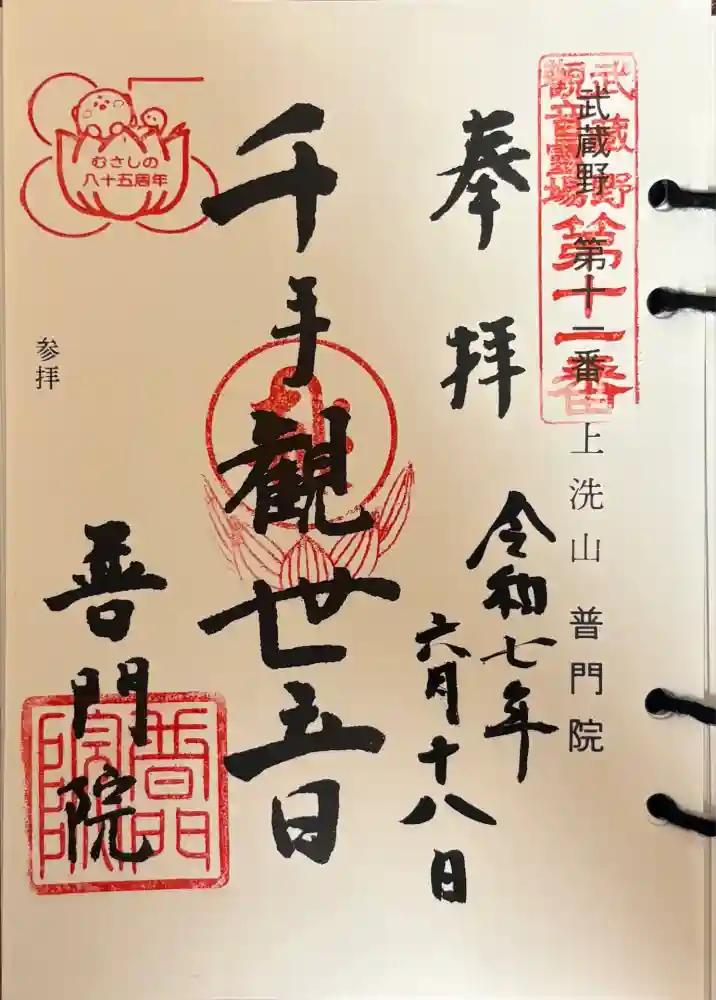 武蔵野
観音霊場
第十一番
武蔵野 第十一番
上洗山 普門院
奉拝
令和七年
六月十八日
千手観世音
普門院
普門院
むさしの
八十五周年
参拝